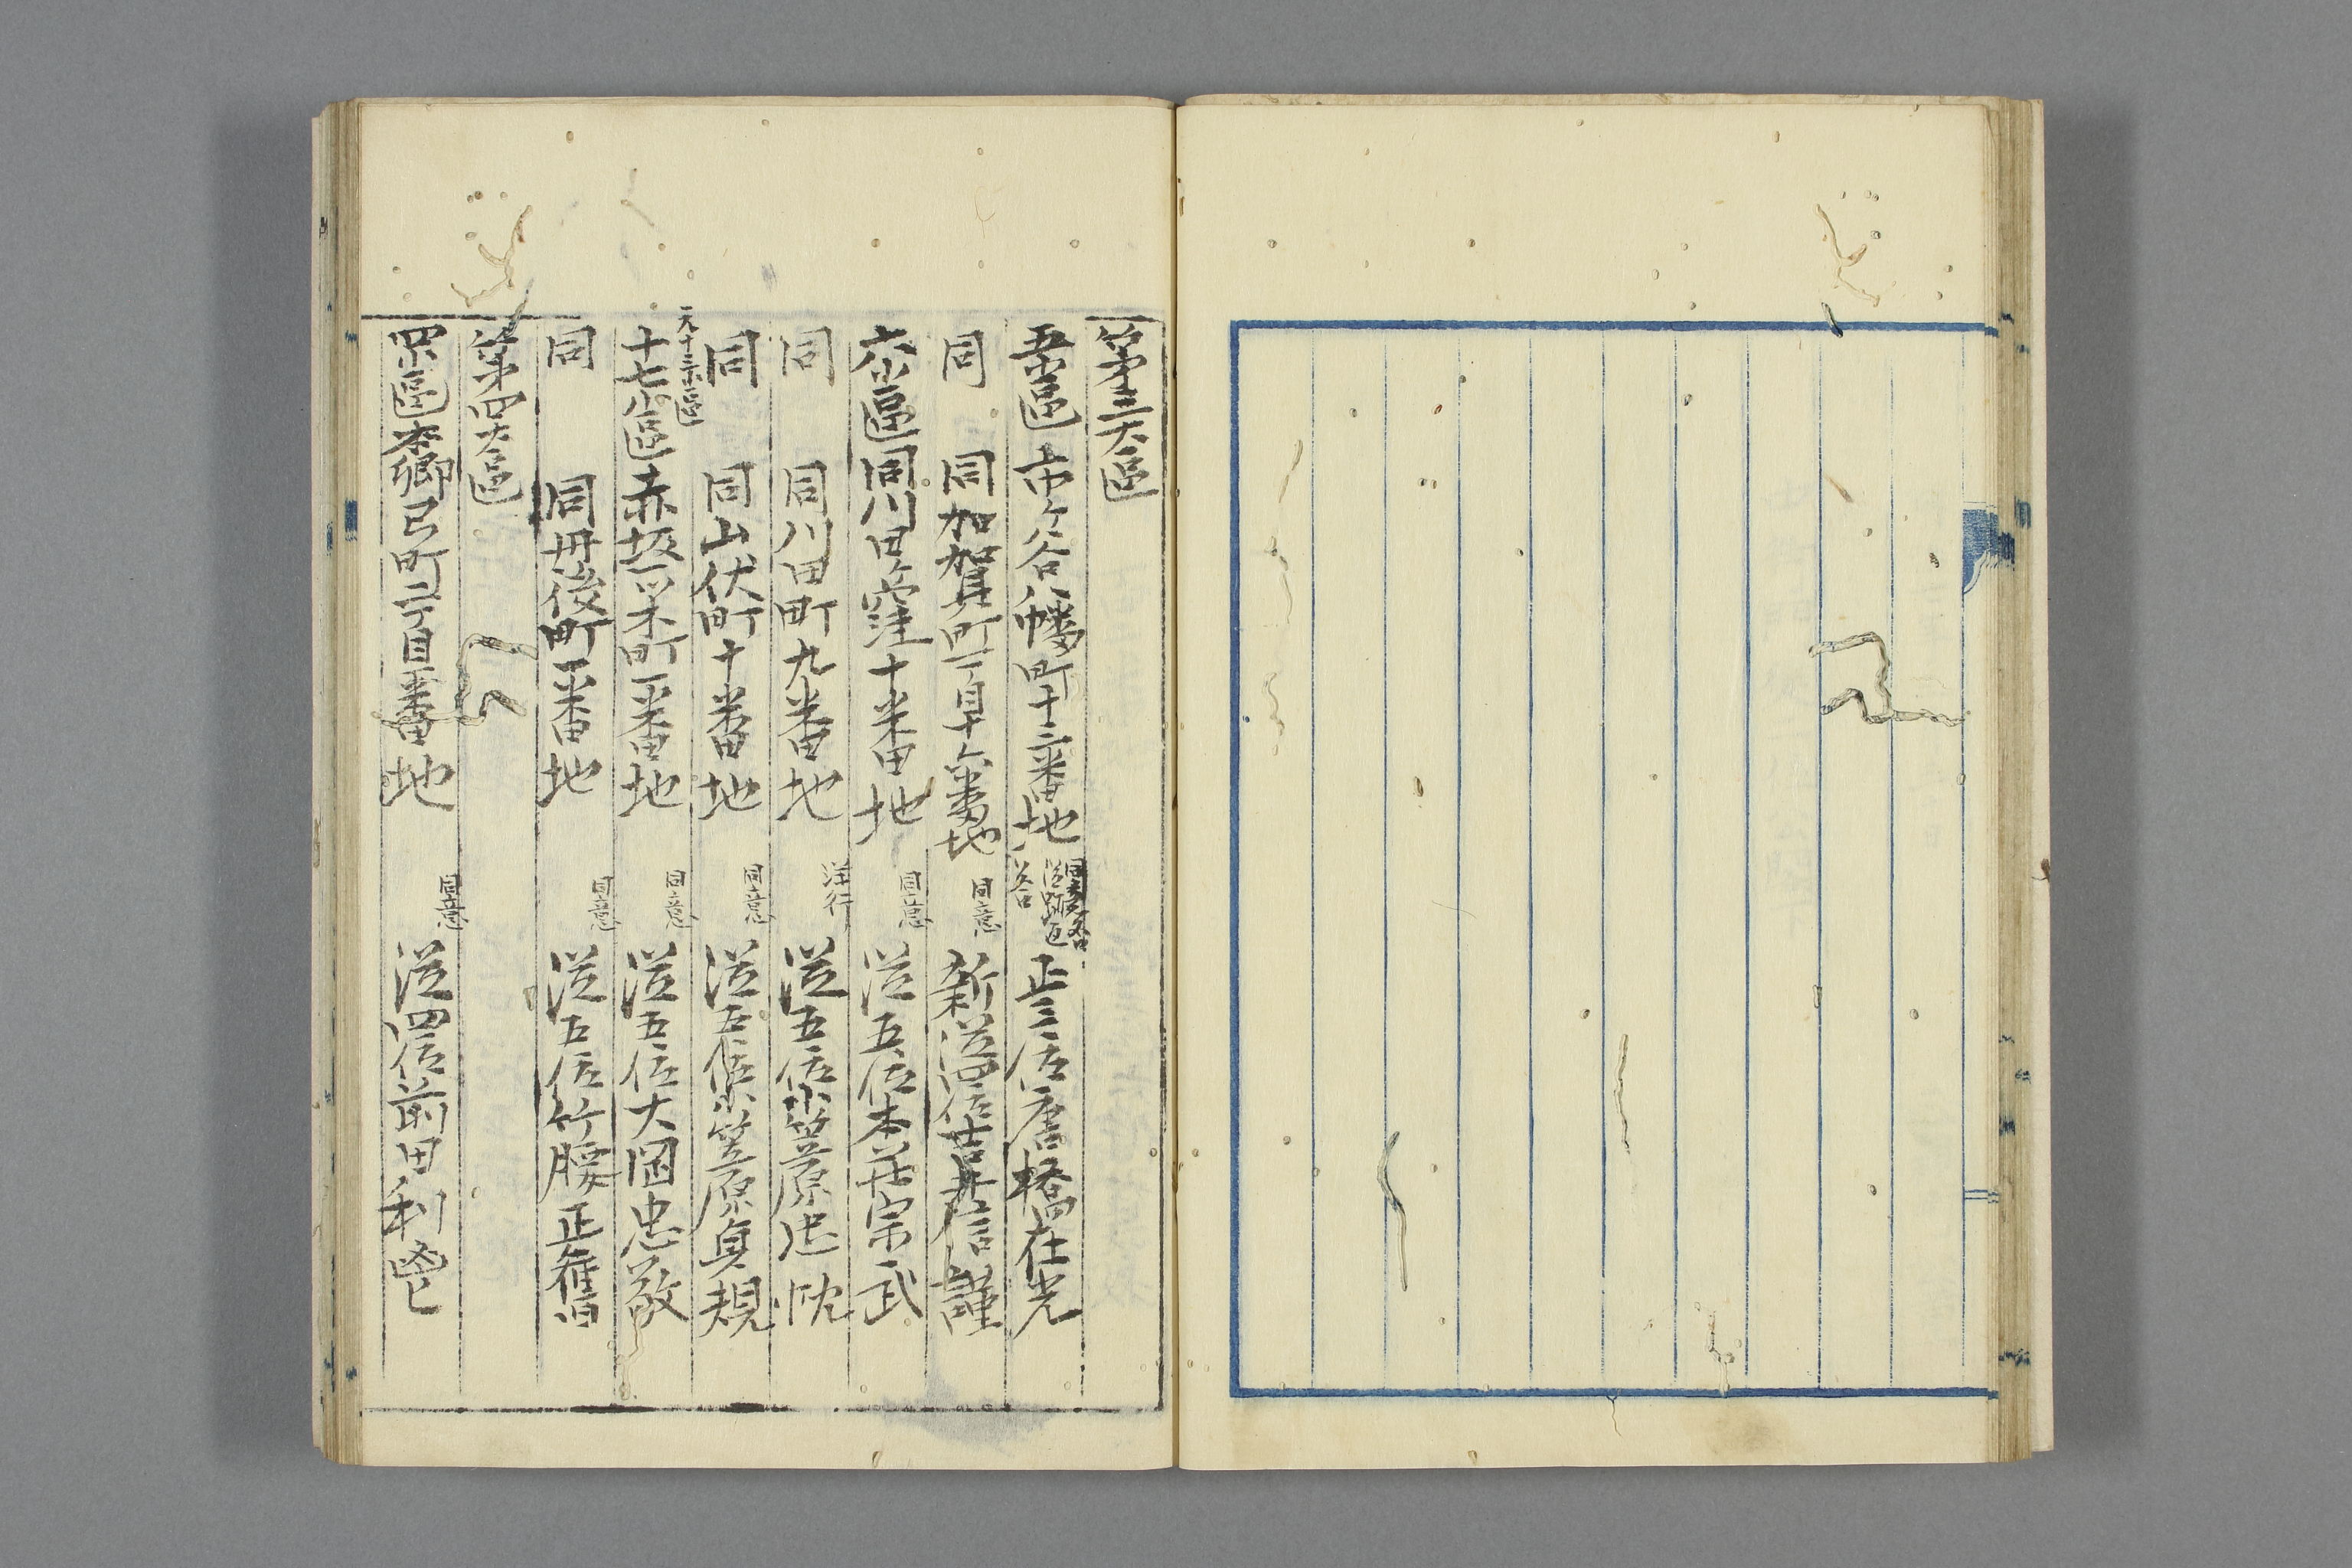 第三大區
五小區 市ヶ谷八幡町十二番地 正三位唐橋在光
同 同加賀町一丁目十六番地 同意 新従四位吉井信謹
六小區 同川田ヶ窪十番地 同意 従五位本荘宗武
同 同川田町九番地 洋行 従五位小笠原忠忱
同 同山伏町十番地 同意 従五位小笠原貞規
十七小區 赤坂一ツ木町一番地 同意 従五位大岡忠敬
同 同丹後町一番地 同意 従五位竹腰正舊
第四大區
四小區 本郷弓町二丁目一番地 同意 従四位前田利鬯